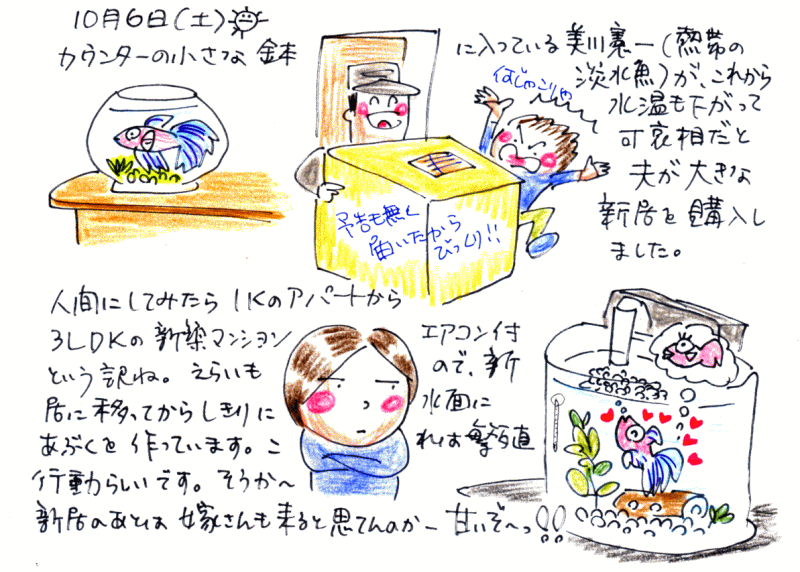 10月6日(土)
カウンターの小さな 鉢
に入っている美川憲一(熱帯の
淡水魚)が、これから
水温も下がって
可哀相だと
夫が大きな
新居を購入し
ました。
何じゃこりゃ
予告も無く
届いたから
びっくり!!
人間にしてみたら1Kのアパートから
3LDKの新築マンション エアコン付
という訳ね。えらいも ので、新
居に移ってからしきりに 水面に
あぶくを作っています。こ れは繁殖
行動らしいです。そうか〜
新居のあとは 嫁さんも来ると思てんのかー 甘いぞ〜っ!!